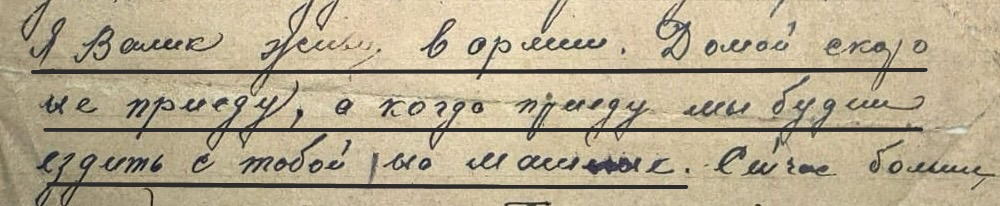 Я Валик живу в армии. Домой скоро
не приеду, а когда приеду мы будим
ездить с тобой на машине. Сейчас больши